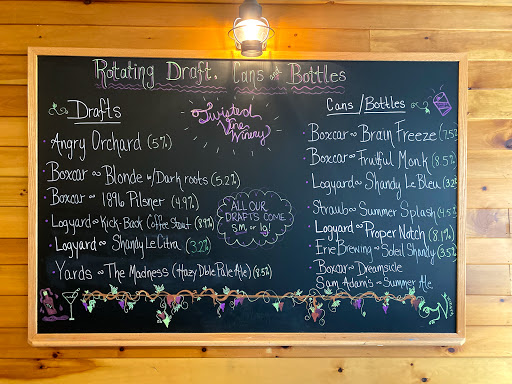 Rotating Draft, Cans or Bottles
Twisted
Vine
Winery
Drafts
Angry Orchard (5%)
Boxcar ∞ Blonde w/Dark roots (5.2%)
Boxcar ∞ 1896 Pilsner (4.9%)
Logyard ∞ Kick-Back Coffee Stout (8.9%)
Logyard ∞ Shandy Le Citra (3.2%)
Yards ∞ The Madness (Hazy Dble Pale Ale) (8.5%)
ALL OUR
DRAFTS COME
sm. or lg!
Cans/Bottles
Boxcar ∞ Brain Freeze (7.5%
Boxcar ∞ Fruitful Monk (8.5%
Logyard ∞ Shandy Le Bleu (3.2%
Straub ∞ Summer Splash (4.5%
Logyard ∞ Proper Notch (8.1%)
Erie Brewing ∞ Soleil Shandy (3.5%
Boxcar ∞ Dreamsicle
Sam Adams ∞ Summer Ale